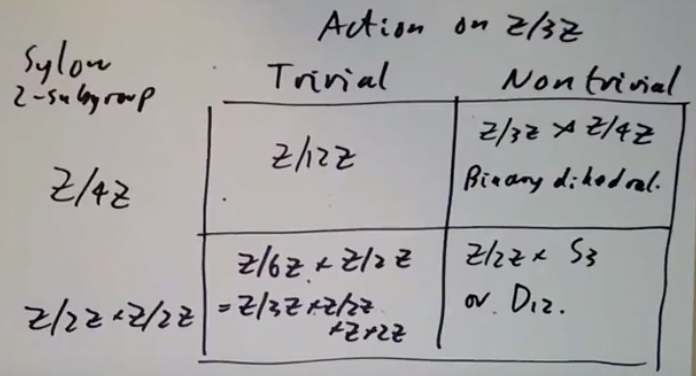 Action on Z/3Z
Sylow
2-subgroup
Trivial
Nontrivial
Z/4Z
Z/12Z
Z/3Z ⋊ Z/4Z
Binary dihedral.
Z/2Z × Z/2Z
Z/6Z × Z/2Z
= Z/3Z × Z/2Z
× Z×2Z
Z/2Z × S3
or D12.